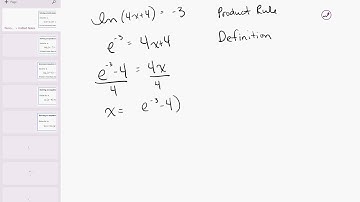 ln(4x+4) = -3 Product Rule
e^-3 = 4x+4 Definition
e^-3-4 = 4x
4 4
x = e^-3-4)